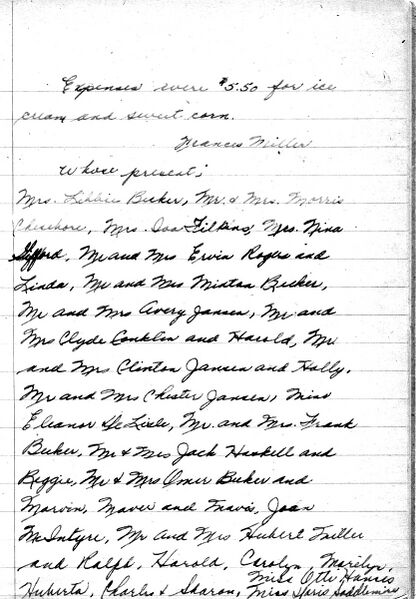 Expenses were $5.50 for ice
cream and sweet corn.
Frances Miller
Whose present;
Mrs. Libbie Becker, Mr. & Mrs. Morris
Cheshore, Mrs. Ida Filkins, Mrs. Nina
Gifford, Mr and Mrs Ervin Rogers and
Linda, Mr and Mrs Minton Becker,
Mr and Mrs Avery Jansen, Mr and
Mrs Clyde Conklin and Harold, Mr
and Mrs Clinton Jansen and Holly,
Mr and Mrs Chester Jansen, Miss
Eleanor DeLisle, Mr. and Mrs. Frank
Becker, Mr & Mrs Jack Haskell and
Reggie, Mr & Mrs Omer Becker and
Marvin, and Travis, Joan
McIntyre, Mr and Mrs Hubert
and Ralph, Harold, Carolyn, Marilyn,
Huberta, Charles & Sharon, Miss